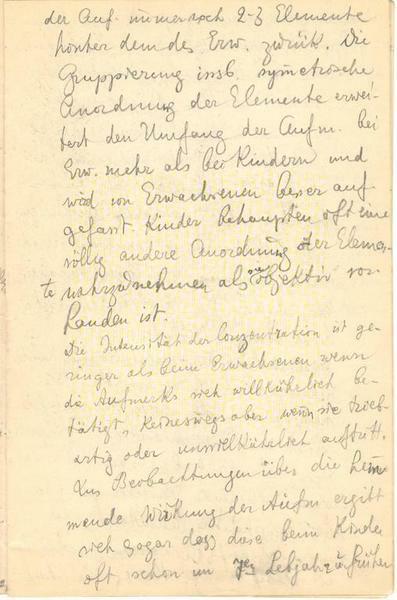 der Auf. immer noch 2-3 Elemente
hinter dem des Erw. zurück. Die
Gruppierung insb. symetrische
Anordnung der Elemente erwei-
tert den Umfang der Aufm. bei
Erw. mehr als bei Kindern und
wird von Erwachsenen besser auf-
gefasst. Kinder behaupten oft eine
völlig andere Anordnung der Elemen-
te wahrzunehmen als objektiv vor-
handen ist.
Die Intensität der Conzentration ist ge-
ringer als beim Erwachsenen wenn
die Aufmerks sich willkührlich be-
tätigt, keineswegs aber wenn sie trieb-
artig oder unwillkührlich auftritt.
Aus Beobachtungen über die hem
mende Wirkung der Aufm ergibt
sich sogar dass diese beim Kinde
oft schon im 7 Lebjahr u früher